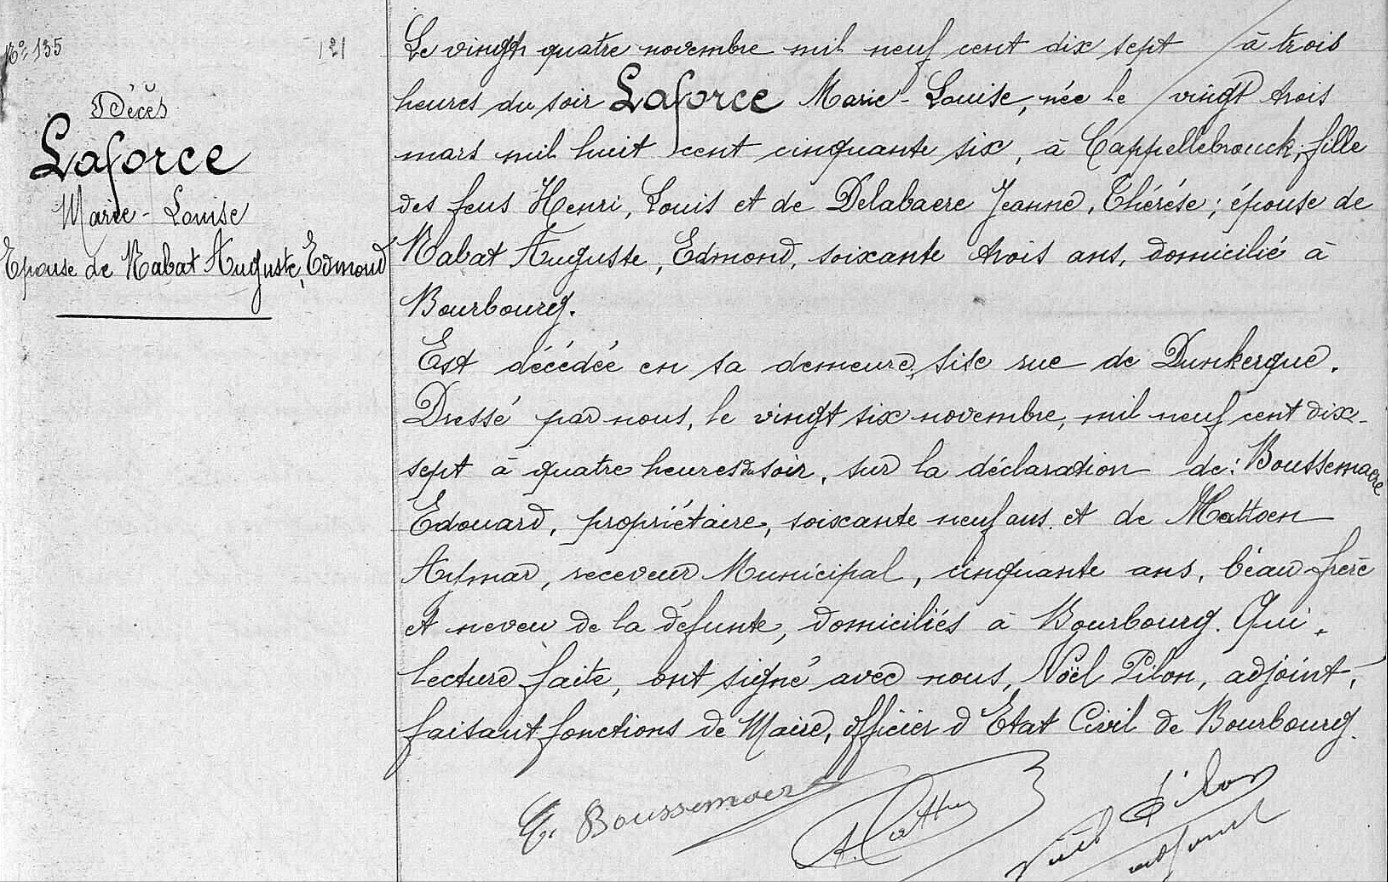 No 135
121
Décès
Laforce
Marie-Louise
Epouse de Nabat Auguste, Edmond
Le vingt quatre novembre mil neuf cent dix sept à trois
heures du soir Laforce Marie-Louise, née le vingt trois
mars mil huit cent cinquante six, à Cappellebrouck, fille
des feus Henri, Louis et de Delabaere Jeanne, Thérése; épouse de
Nabat Auguste, Edmond, soixante trois ans, domicilié à
Bourbourg.
Est décédée en sa demeure, sise rue de Dunkerque.
Dressé par nous, le vingt six novembre, mil neuf cent dix-
sept à quatre heures du soir, sur la déclaration de: Boussemaere
Edouard, propriétaire, soixante neuf ans et de Mattoen
Aymar, receveur Municipal, cinquante ans, béau frère
et neveu de la défunte, domiciliés à Bourbourg. Qui,
lecture faite, ont signé avec nous, Noël Pilon, adjoint,
faisant fonctions de Maire, officier d'Etat Civil de Bourbourg.
E. Boussemaere
Noël Pilon
adjoint